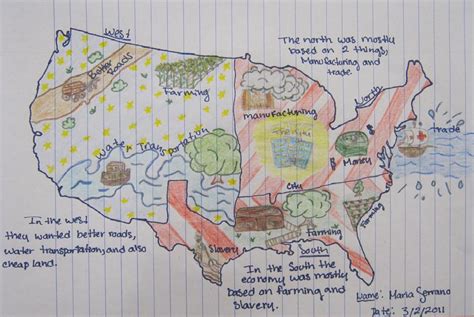 West
The north was mostly
based on 2 things;
Manufacturing and
trade.
Better
Roads
Farming
manufacturing
North
trade
Water Transportation
Money
City
Farming
Farming
Slavery
South
In the west
they wanted better roads,
water transportation, and also
cheap land.
In the South the
economy was mostly
based on farming and
Slavery.
Name: Maria Serrano
Date: 3/2/2011